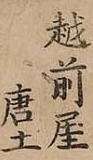 越前屋
唐土